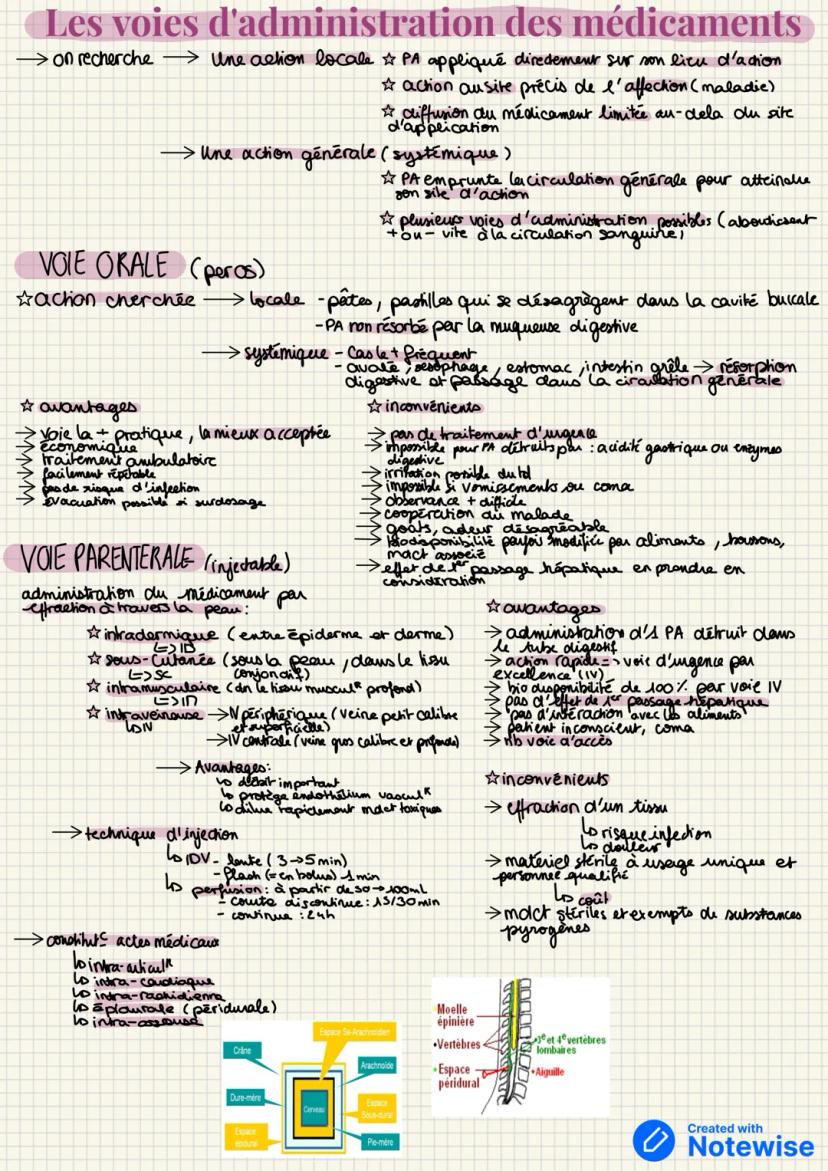 Les voies d'administration des médicaments
→ on recherche → une action locale ☆ PA appliqué directement sur son lieu d'action
☆ action au site précis de l'affection (maladie)
☆ diffusion du médicament limitée au-dela du site
d'application
→ une action générale (systémique)
☆ PA emprunte la circulation générale pour atteindre
son site d'action
☆ plusieurs voies d'administration possibles (aboutissent
+ ou - vite à la circulation sanguine)
VOIE ORALE (per os)
☆ action cherchée → locale - pâtes, pastilles qui se désagrègent dans la cavité buccale
- PA non résorbé par la muqueuse digestive
→ systémique - Cas le + fréquent
- avalé, œsophage, estomac, intestin grêle → résorption
digestive et passage dans la circulation générale
☆ avantages
→ voie la + pratique, la mieux acceptée
→ économique
→ traitement ambulatoire
→ facilement répétable
→ pas de risque d'infection
→ évacuation possible si surdosage
☆ inconvénients
→ pas de traitement d'urgence
→ impossible pour PA détruits par : acidité gastrique ou enzymes
digestive
→ irritation possible du td
→ impossible si vomissements ou coma
→ observance + difficile
→ coopération du malade
→ goûts, odeur désagréable
→ biodisponibilité parfois modifiée par aliments, boissons,
mdct associé
→ effet de 1er passage hépatique en prendre en
considération
VOIE PARENTERALE (injectable)
administration du médicament par
effraction à travers la peau :
☆ intradermique (entre épiderme et derme)
↳ ID
☆ sous-cutanée (sous la peau, dans le tissu
conjonctif)
↳ SC
☆ intramusculaire (dn le tissu musculR profond)
↳ IM
☆ intraveineuse → IV périphérique (veine petit calibre
et superficielle)
↳ IV
→ IV centrale (veine gros calibre et profonde)
→ Avantages :
↳ débit important
↳ protège endothélium vasculR
↳ dilue rapidement mdct toxiques
→ technique d'injection
↳ IDV - lente (3 → 5 min)
- flash (= en bolus) 1 min
↳ perfusion : à partir de 50 → 100ml
- courte discontinue : 15/30 min
- continue : 24h
→ constitut° actes médicaux
↳ intra-articulR
↳ intra-cardiaque
↳ intra-rachidienne
↳ épidurale (péridurale)
↳ intra-osseuse
☆ avantages
→ administration d'1 PA détruit dans
le tube digestif
→ action rapide => voie d'urgence par
excellence (IV)
→ bio disponibilité de 100% par voie IV
→ pas d'effet de 1er passage hépatique
→ pas d'intéraction avec les aliments
→ patient inconscient, coma
→ nb voie d'accès
☆ inconvénients
→ effraction d'un tissu
↳ risque infection
↳ douleur
→ matériel stérile à usage unique et
personnel qualifié
↳ coût
→ mdct stériles et exempts de substances
pyrogènes
Espace Ss-Arachnoïdien
Crâne
Arachnoïde
Dure-mère
Cerveau
Espace
Sous-dural
Espace
épidural
Pie-mère
Moelle
épinière
Vertèbres
3e et 4e vertèbres
lombaires
Espace
péridural
Aiguille
Created with
Notewise